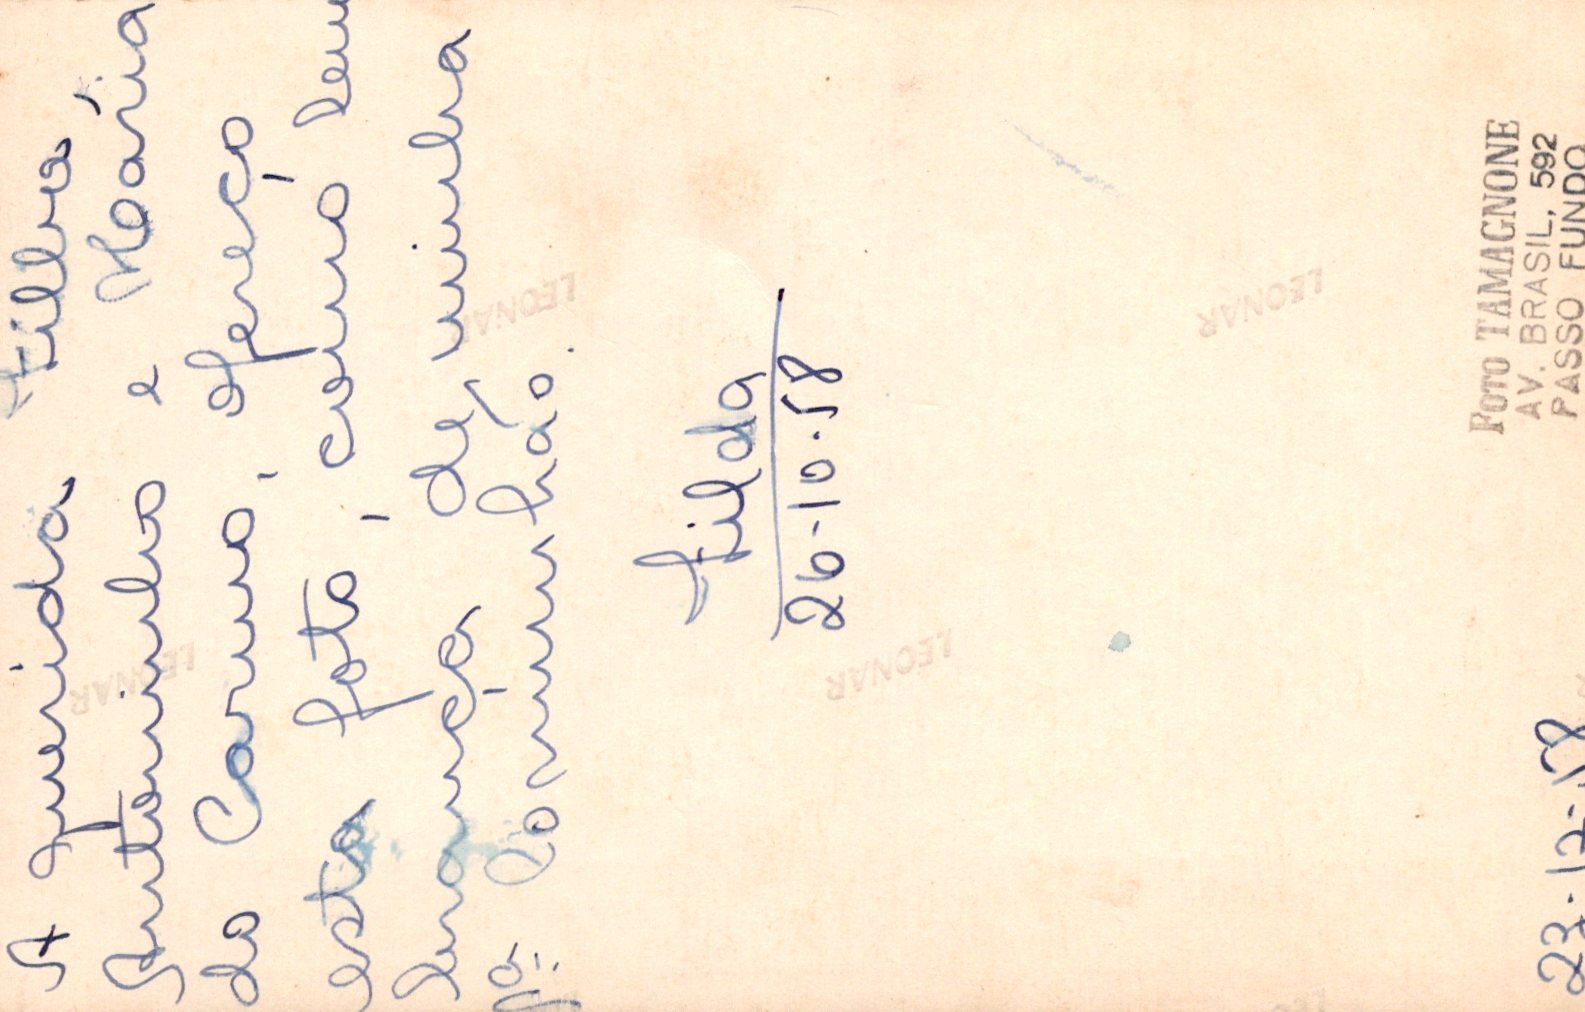 A querida
Antoninho e Maria
do Carmo, ofereço
esta foto, como lem
brança de minha
1ª Comunhão.
Tilda
26-10-58
FOTO TAMAGNONE
AV. BRASIL, 592
PASSO FUNDO
23-12-58
LEONAR
LEONAR
LEONAR
LEONAR